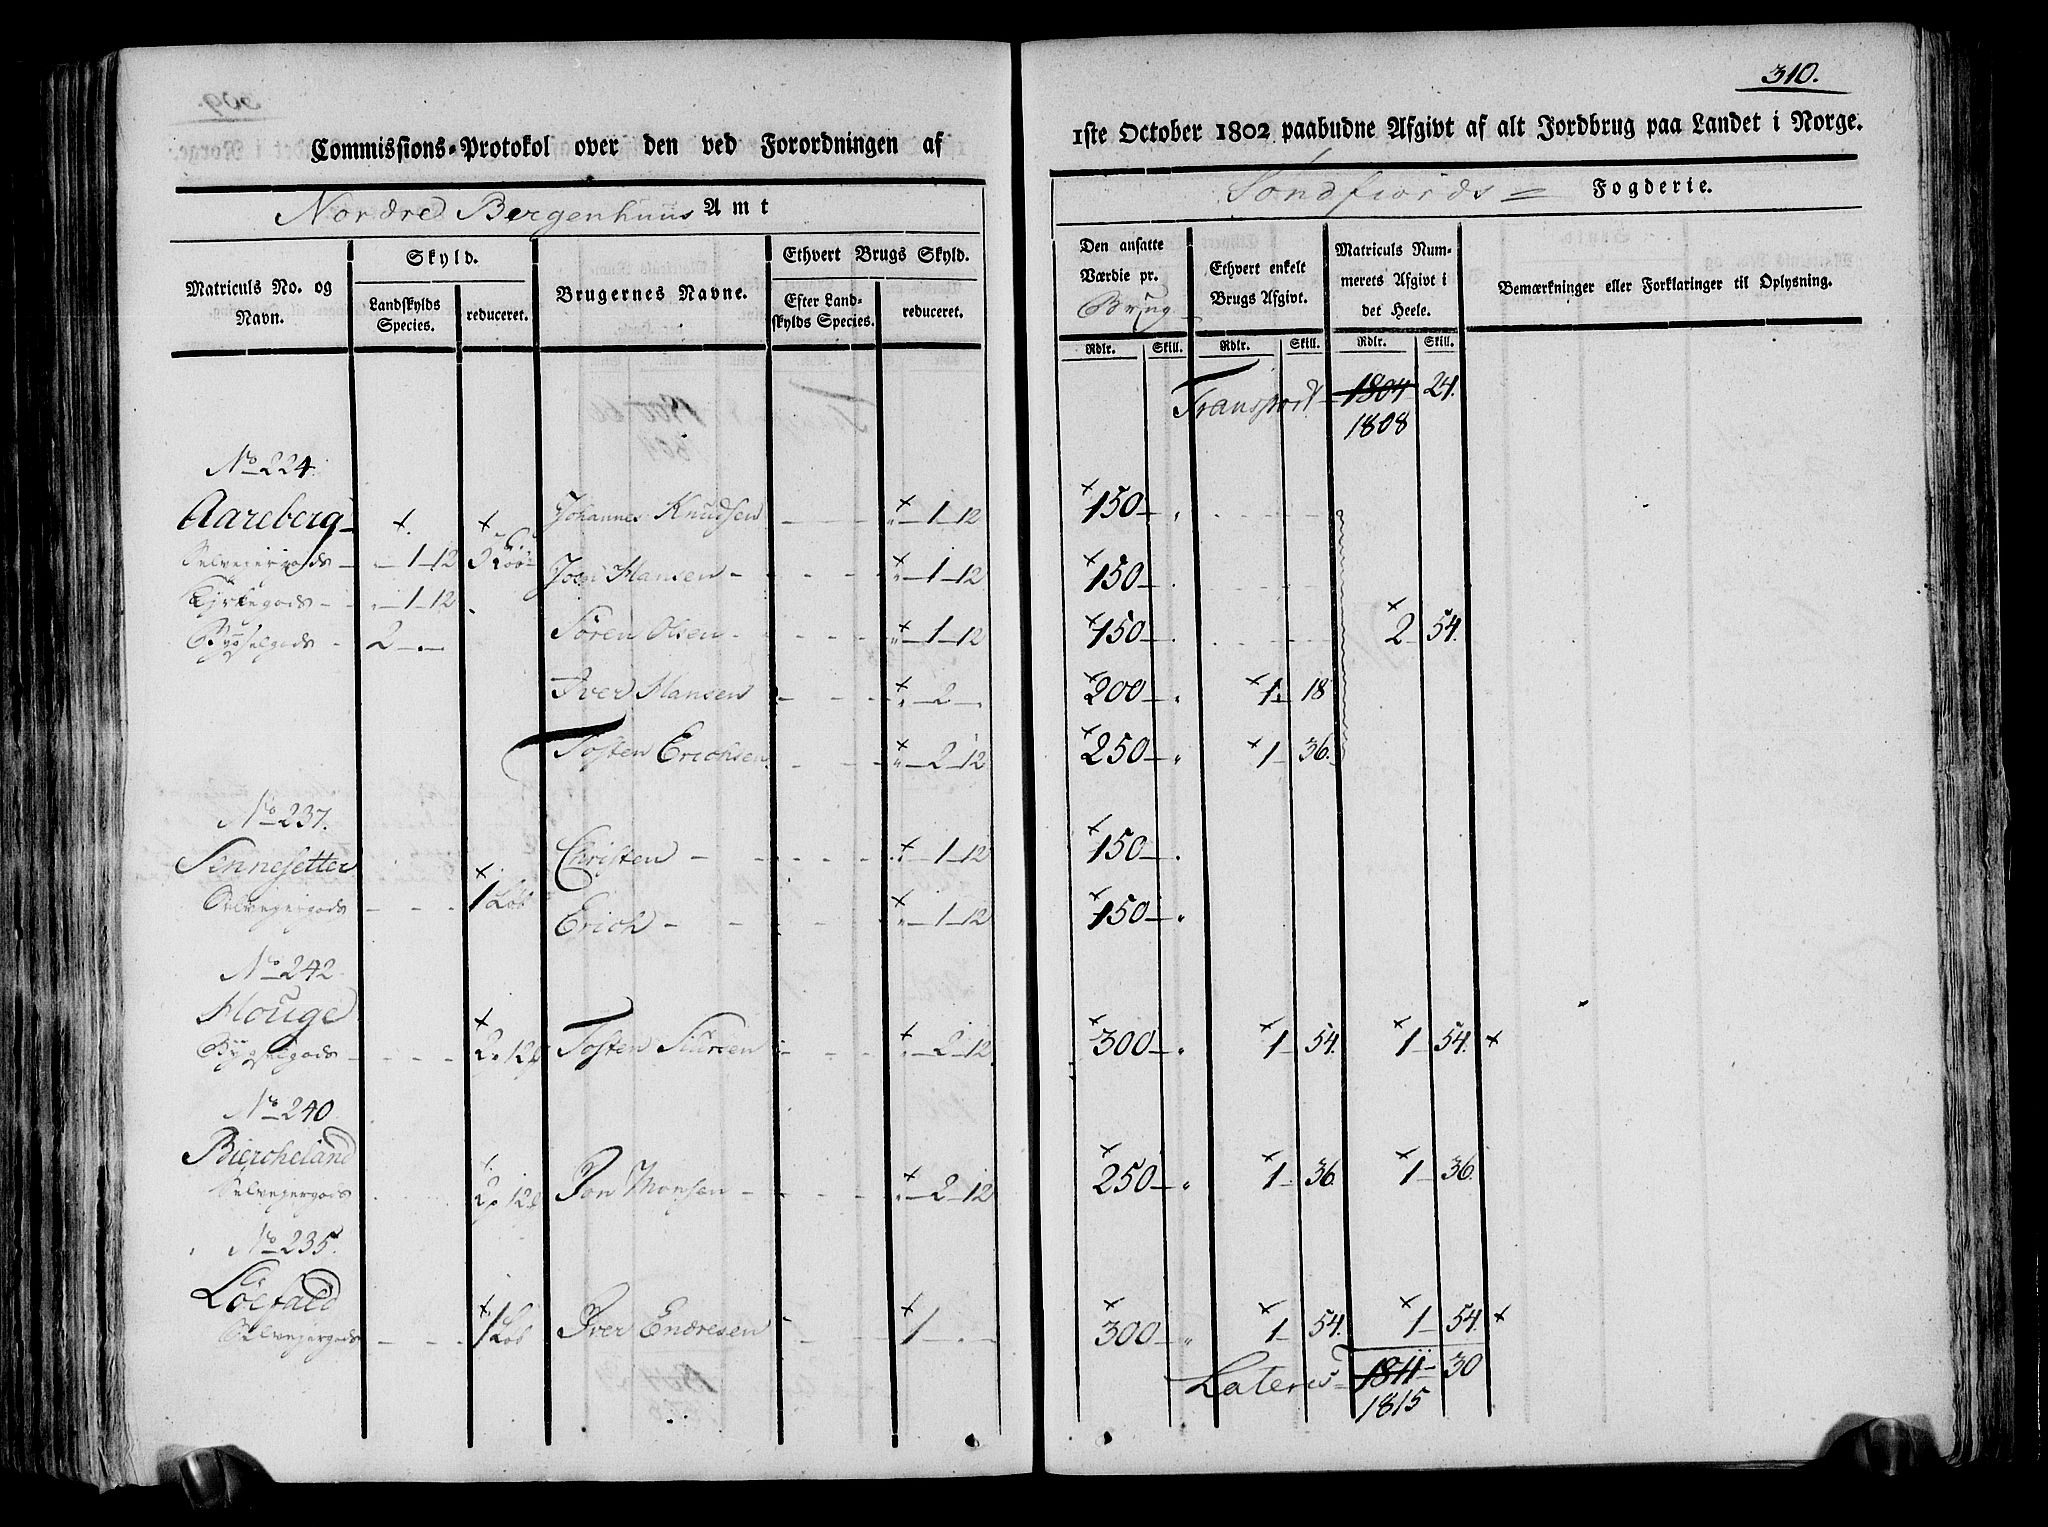 310.
Commissions-Protokol over den ved Forordningen af 1ste October 1802 paabudne Afgivt af alt Jordbrug paa Landet i Norge.
Nordre Bergenhuus Amt
Søndfiords Fogderie.
Matriculs No. og Navn.
Skyld.
Landskylds Species.
reduceret.
Brugernes Navne.
Ethvert Brugs Skyld.
Efter Landskylds Species.
reduceret.
Den ansatte Værdie pr. Brug
Rdlr. Skill.
Ethvert enkelt Brugs Afgivt.
Rdlr. Skill.
Matriculs Nummerets Afgivt i det Heele.
Rdlr. Skill.
Bemærkninger eller Forklaringer til Oplysning.
Transport 1804 24.
1808
No 224.
Aareberg Johannes Knudsen 1 12 150
Selveiergods 1 12 Joen Hansen 1 12 150
Kirkegods 1 12
Bygselgods 2 Søren Olsen 1 12 150 2 54.
Iver Hansen 2 200 1 18
Tosten Erichsen 2 12 250 1 36.
No 237.
Sennesetter Christen 1 12 150
Selvejergods 1 Løb Erich 1 12 150
No 242
Houge
Bygselgods 2 12 Tosten Siursen 2 12 300 1 54. 1 54.
No 240
Biercheland
Selvejergods 2 12 Jon Monsen 2 12 250 1 36 1 36.
No 235.
Løefald
Selvejergods 1 Løb Iver Endresen 1 300 1 54. 1 54.
Lateris 1811 30
1815